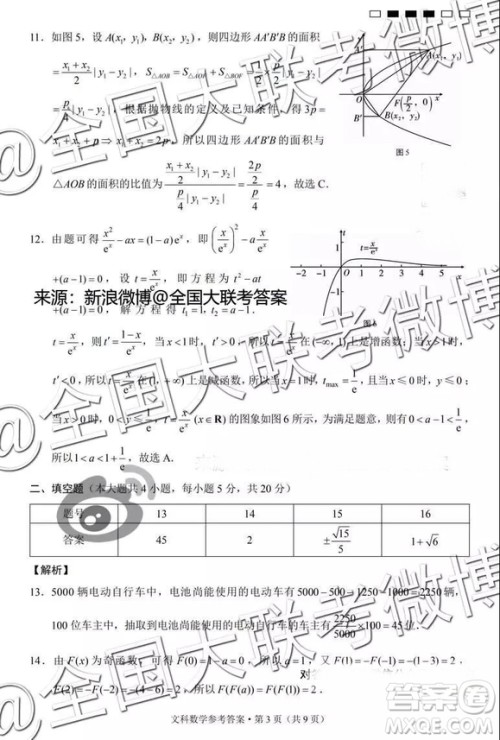 11. 如图5，设 A(x₁, y₁)，B(x₂, y₂)，则四边形 AA′B′B 的面积
= (x₁+x₂)/2 |y₁−y₂|，S△AOB = S△AOF + S△BOF =
= p/4 |y₁−y₂|，根据抛物线的定义及已知条件，得 3p =
x₁+x₂+p ⇒ x₁+x₂=2p，所以四边形 AA′B′B 的面积与
△AOB 的面积的比值为 ((x₁+x₂)/2 |y₁−y₂|)/(p/4 |y₁−y₂|) = (2p/2)/(p/4) = 4，故选 C.
A(x₁, y₁)
F(p/2, 0)
x
B′
B(x₂, y₂)
图5
12. 由题可得 x²/eˣ − ax = (1−a)eˣ，即 (x/eˣ)² − a·x/eˣ
+(a−1)=0，设 t = x/eˣ，即方程为 t²−at
来源：新浪微博@全国大联考答案
+(a−1)=0，解方程得 t₁=1, t₂=a−1.
t = x/eˣ
图6
t = x/eˣ，则 t′ = (1−x)/eˣ，当 x<1 时，t′>0，所以 t = x/eˣ 在 (−∞, 1) 上是增函数；当 x>1 时，
t′<0，所以 t = x/eˣ 在 (1, +∞) 上是减函数，所以当 x=1 时，t_max = 1/e，且当 x≤0 时，y≤0；
当 x>0 时，0<y≤1/e，t = x/eˣ (x∈R) 的图象如图 6 所示，为满足题意，则有 0<a−1<1/e，
所以 1<a<1+1/e，故选 A.
二、填空题（本大题共 4 小题，每小题 5 分，共 20 分）
题号 13 14 15 16
答案 45 2 ±√15/5 1+√6
【解析】
13. 5000 辆电动自行车中，电池尚能使用的电动车有 5000−500−1250−1000=2250，
100 位车主中，抽取到电池尚能使用的电动车的车主人数为 2250/5000 ×100=45 位.
14. 由 F(x) 为奇函数，可得 F(0)=1−a=0，所以 a=1，又 F(1)=−F(−1)=−(1−3)=2，
F(2)=−F(−2)=−(4−6)=2，所以 F(F(a))=F(F(1))=F(2)=2.
文科数学参考答案·第 3 页（共 9 页）
@全国大联考微博
答案圈
MXQE.COM